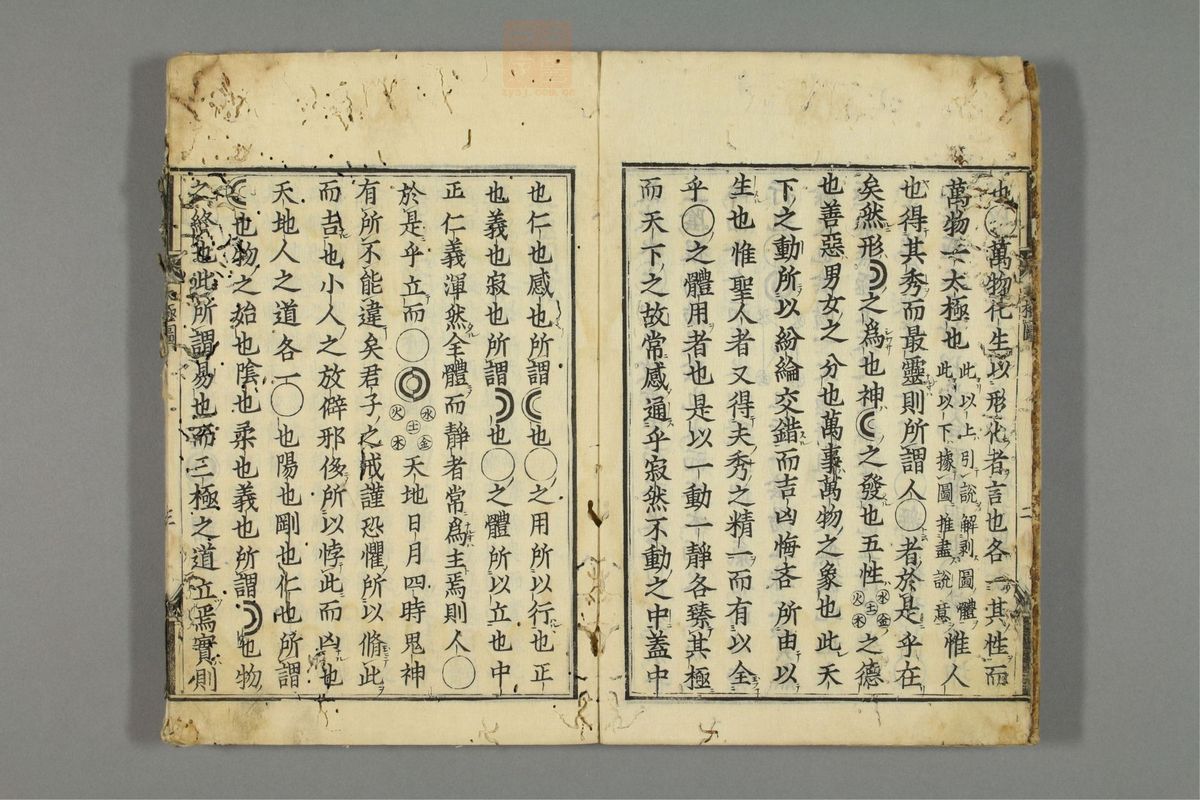 也○萬物化生以形化者言也各一其性而
萬物一太極也 此以上引說解剥圖體 此以下據圖推盡說意 惟人
也得其秀而最靈則所謂人○者於是乎在
矣然形☽之爲也神☾之發也五性水火土金木之德
也善惡男女之分也萬事萬物之象也此天
下之動所以紛綸交錯而吉凶悔吝所由以
生也惟聖人者又得夫秀之精一而有以全
乎○之體用者也是以一動一靜各臻其極
而天下之故常感通乎寂然不動之中蓋中
也仁也感也所謂☾也○之用所以行也正
也義也寂也所謂☽也○之體所以立也中
正仁義渾然全體而靜者常爲主焉則人○
於是乎立而○◎水火土金木天地日月四時鬼神
有所不能違矣君子之戒謹恐懼所以脩此
而吉也小人之放僻邪侈所以悖此而凶也
天地人之道各一○也陽也剛也仁也所謂
☾也物之始也陰也柔也義也所謂☽也物
之終也此所謂易也而三極之道立焉實則
極圖
二
極圖
三
zysj.com.cn